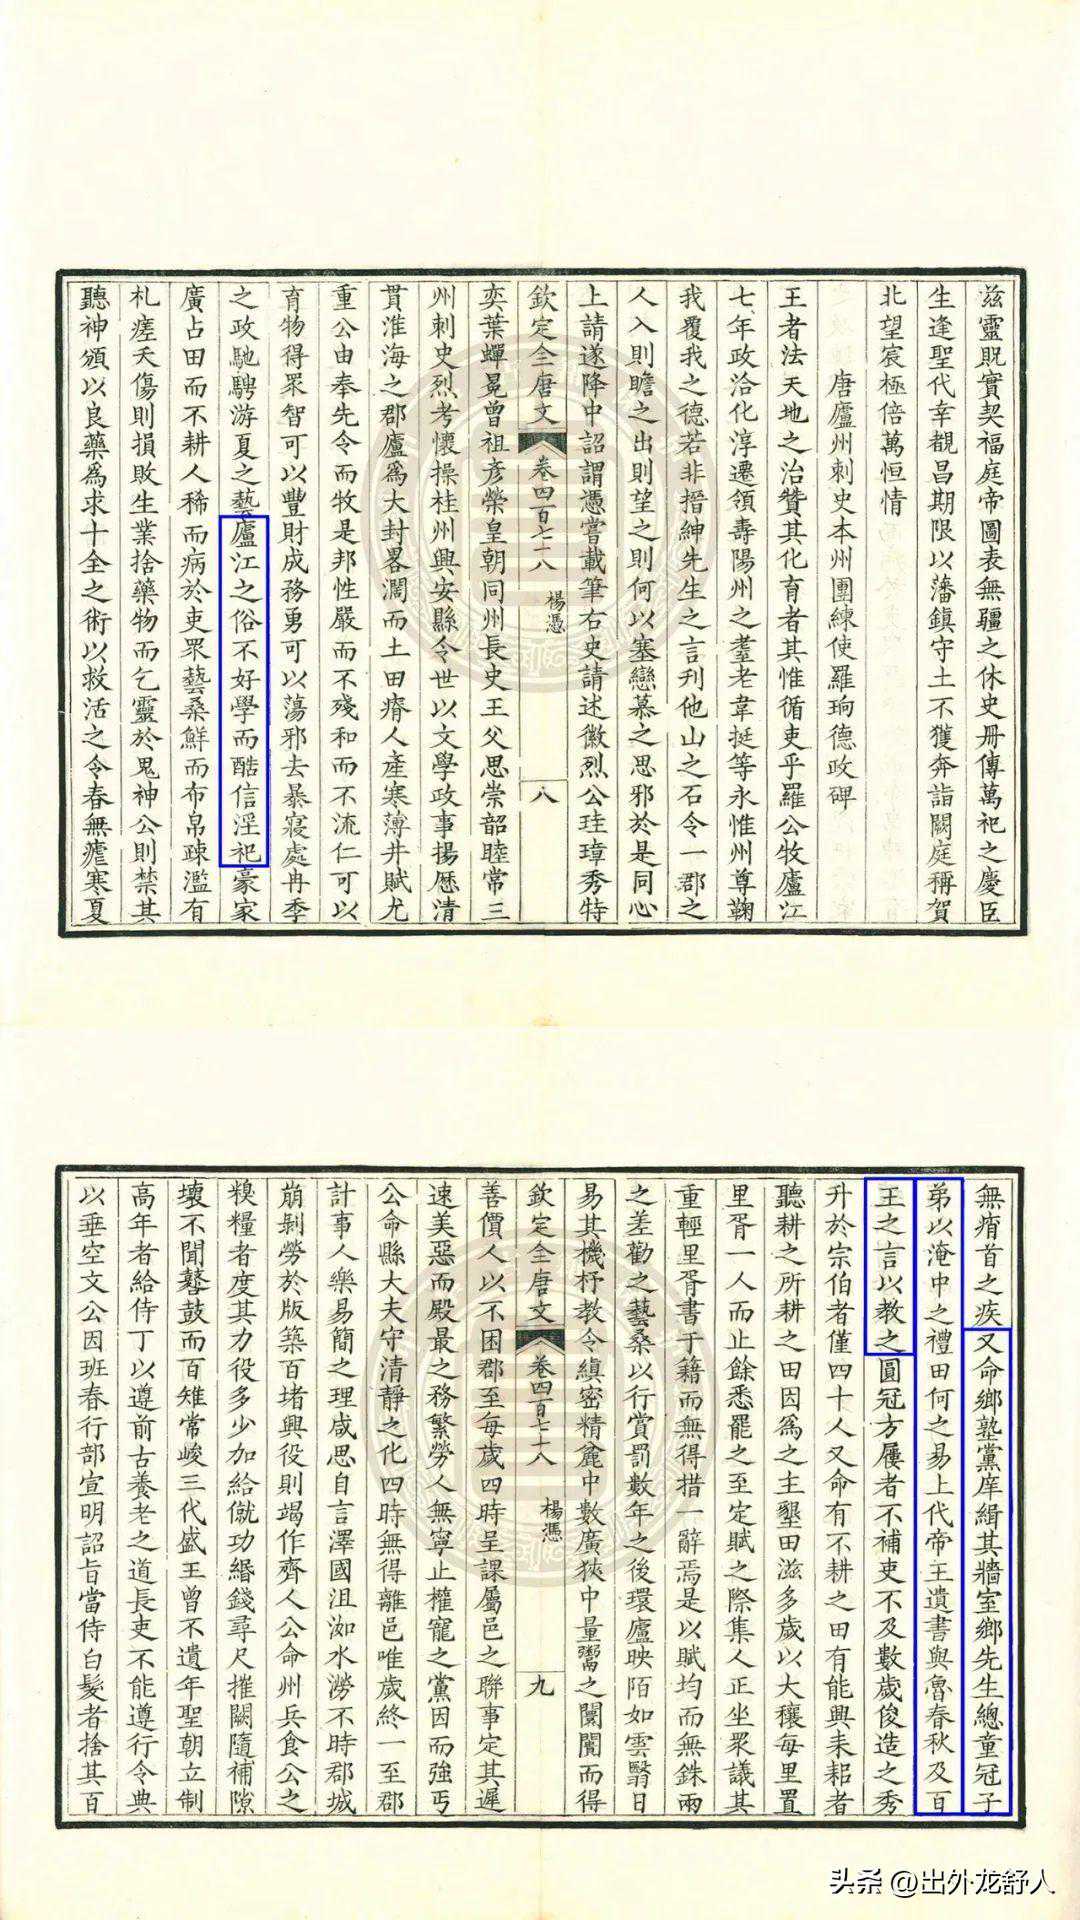 茲靈貺實契福庭帝圖表無疆之休史冊傳萬祀之慶臣
生逢聖代幸覩昌期限以藩鎮守土不獲奔詣闕庭稱賀
北望宸極倍萬恒情
唐廬州刺史本州團練使羅珦德政碑
王者法天地之治贊其化育者其惟循吏乎羅公牧廬江
七年政洽化淳遷領壽陽州之耋老韋挺等永惟州尊鞠
我覆我之德若非搢紳先生之言刊他山之石令一郡之
人入則瞻之出則望之則何以塞戀慕之思邪於是同心
上請遂降中詔謂憑嘗載筆右史請述徽烈公珪璋秀特
欽定全唐文
卷四百七十八
楊憑
八
奕葉蟬冕曾祖彦榮皇朝同州長史王父思崇韶睦常三
州刺史烈考懷操桂州興安縣令世以文學政事揚歷清
貫淮海之郡廬為大封畧濶而土田瘠人產寒薄井賦尤
重公由奉先令而牧是邦性嚴而不殘和而不流仁可以
育物得眾智可以豐財成務勇可以蕩邪去暴寢處冉季
之政馳騁游夏之藝廬江之俗不好學而酷信淫祀豪家
廣占田而不耕人稀而病於吏眾藝桑鮮而布帛疎濫有
札瘥夭傷則損敗生業捨藥物而乞靈於鬼神公則禁其
聽神頒以良藥為求十全之術以救活之令春無瘧寒夏
無痟首之疾又命鄉塾黨庠緝其牆室鄉先生總童冠子
弟以淹中之禮田何之易上代帝王遺書與魯春秋及百
王之言以教之圓冠方屨者不補吏不及數歲俊造之秀
升於宗伯者僅四十人又命有不耕之田有能興耒耜者
聽耕之所耕之田因為之主墾田滋多歲以大穰每里置
里胥一人而止餘悉罷之至定賦之際集人正坐眾議其
重輕里胥書于籍而無得措一辭焉是以賦均而無銖兩
之差勸之藝桑以行賞罰數年之後環廬映陌如雲翳日
易其機杼教令縝密精麄中數廣狹中量鬻之闤闠而得
欽定全唐文
卷四百七十八
楊憑
九
善價人以不困郡至每歲四時呈課屬邑之聯事定其遲
速美惡而殿最之務繁勞人無寧止權寵之黨因而強丐
公命縣大夫守清靜之化四時無得離邑唯歲終一至郡
計事人樂易簡之理咸思自言澤國沮洳水澇不時郡城
崩剝勞於版築百堵興役則竭作齊人公命州兵食公之
糗糧者度其力役多少加給僦功緡錢尋尺摧闕隨補隙
壞不聞鼛鼓而百雉常峻三代盛王曾不遺年聖朝立制
高年者給侍丁以遵前古養老之道長吏不能遵行令典
以垂空文公因班春行部宣明詔旨當侍白髮者捨其百
头条 @出外龙舒人